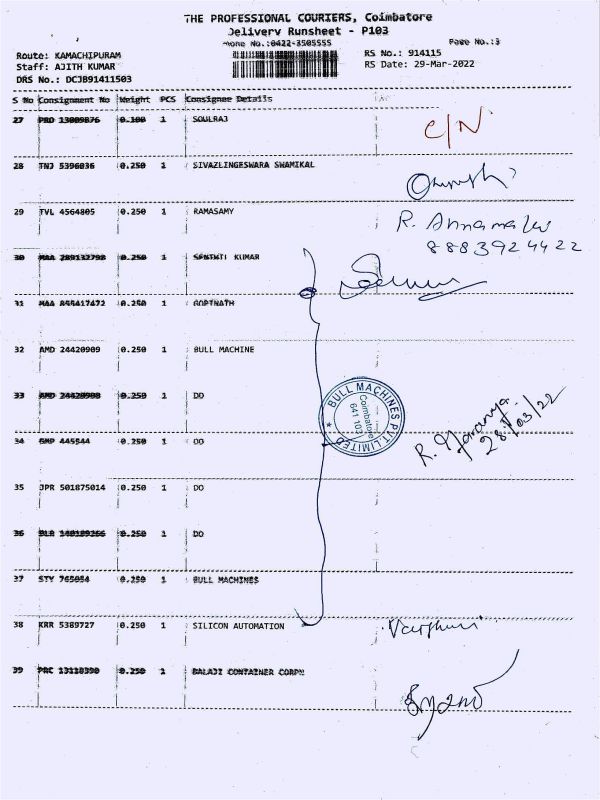 THE PROFESSIONAL COURIERS, Coimbatore
Delivery Runsheet - P103
Phone No.:0422-3505555 Page No.:3
Route: KAMACHIPURAM RS No.: 914115
Staff: AJITH KUMAR RS Date: 29-Mar-2022
DRS No.: DCJB91411503
S No Consignment No Weight PCS Consignee Details
27 PRD 13009876 0.100 1 SOULRAJ
C/N
28 TNJ 5396036 0.250 1 SIVAZLINGESWARA SWAMIKAL
29 TVL 4564805 0.250 1 RAMASAMY
R.
8883924422
30 MAA 289132798 0.250 1 SENTHTI KUMAR
31 MAA 855417472 0.250 1 GOPINATH
32 AMD 24420909 0.250 1 BULL MACHINE
33 AMD 24420908 0.250 1 DO
BULL MACHINES PVT. LIMITED
Coimbatore
641 103
R.
28/03/22
34 GMP 445544 0.250 1 DO
35 JPR 501875014 0.250 1 DO
36 BLR 0.250 1 DO
37 STY 765054 0.250 1 BULL MACHINES
38 KRR 5389727 0.250 1 SILICON AUTOMATION
39 PRC 13118390 0.250 1 BALAJI CONTAINER CORPN